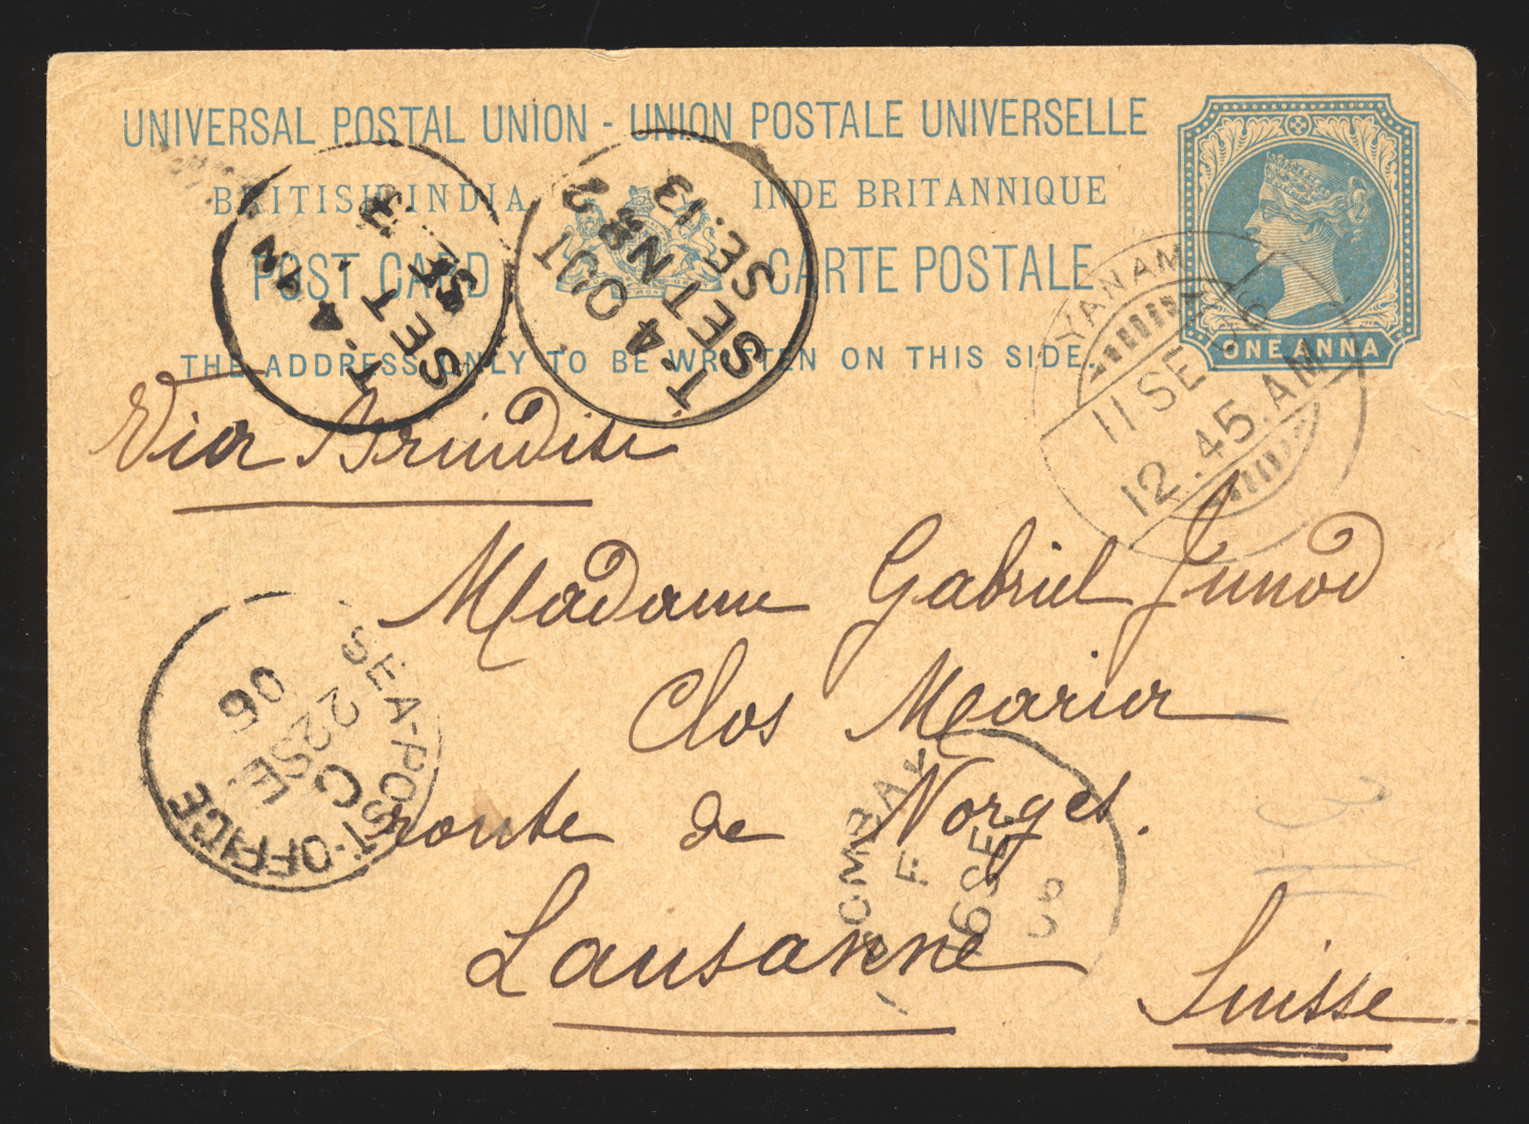 UNIVERSAL POSTAL UNION - UNION POSTALE UNIVERSELLE
BRITISH INDIA INDE BRITANNIQUE
POST CARD CARTE POSTALE
THE ADDRESS ONLY TO BE WRITTEN ON THIS SIDE.
ONE ANNA
YANAM
11 SE 06
12.45.AM
SET
T. 4 OUT
SET N 8 2
SE.13
Via Brindisi
Madame Gabriel Junod
Clos Maria
route de Norges.
Lausanne
Suisse
SEA-POST-OFFICE
C
22 SE.
06
BOMBAY
F
SE
06